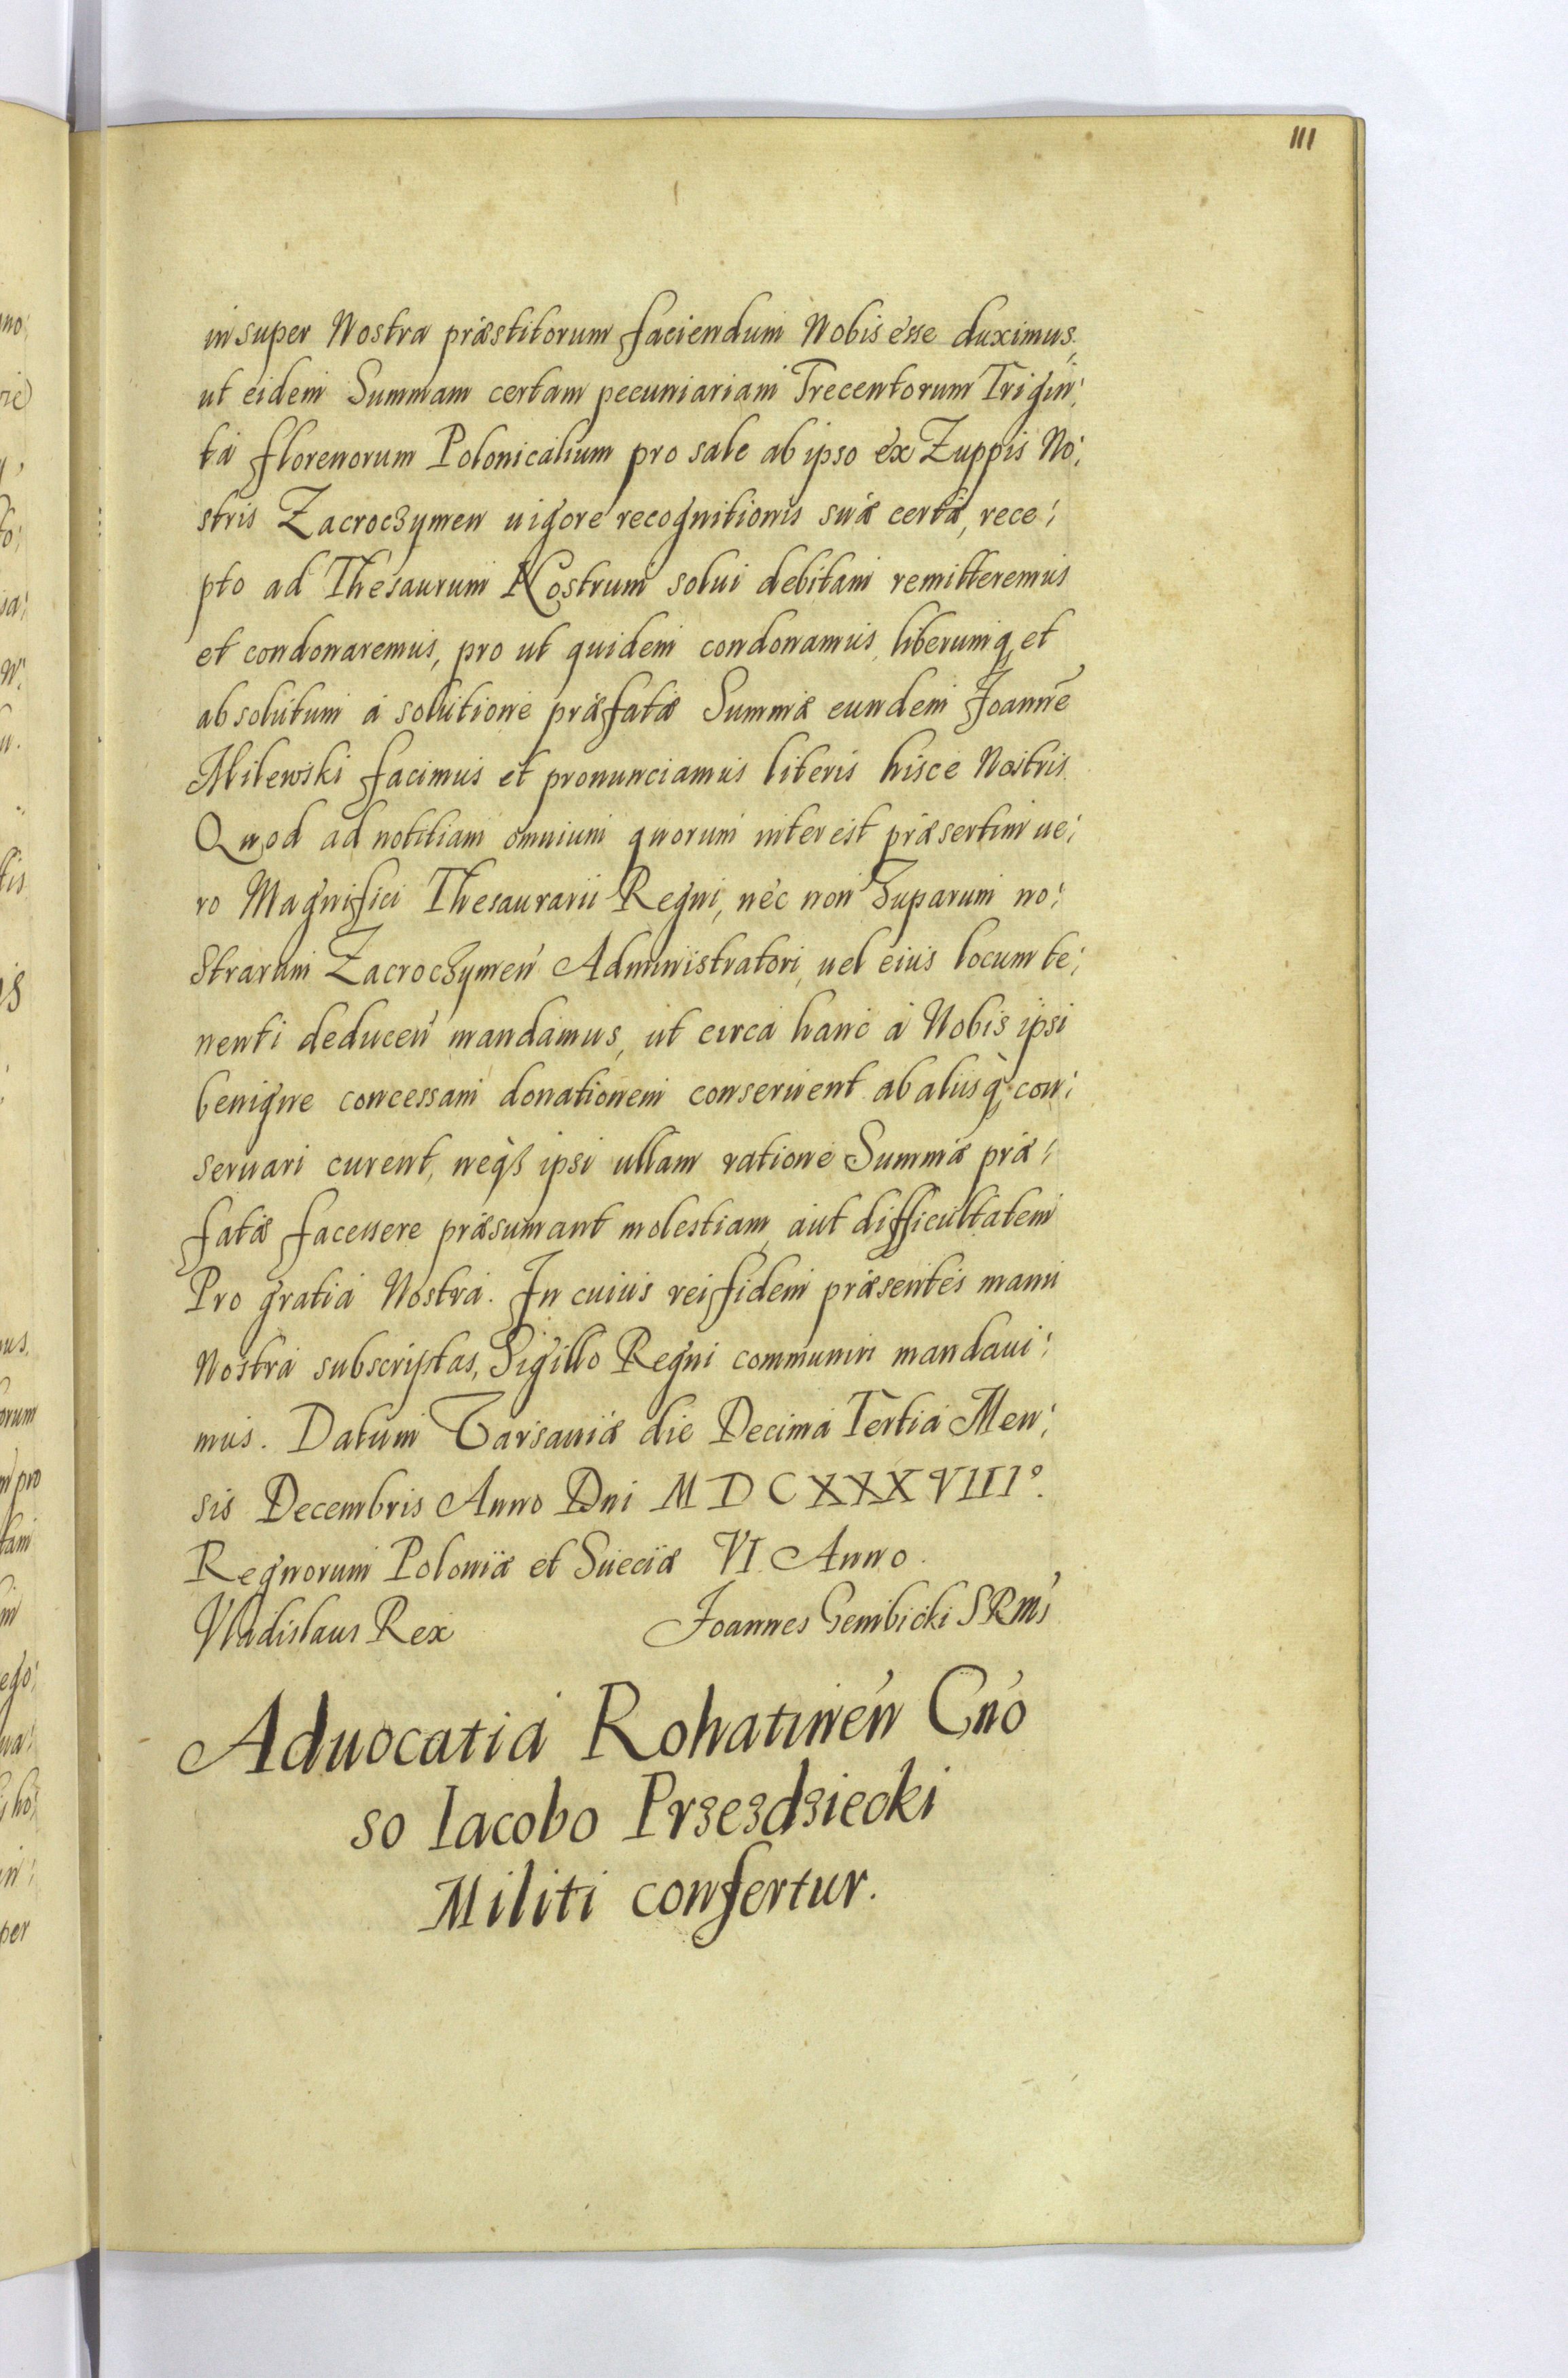 111
insuper Nostra præstitorum faciendum Nobis esse duximus,
ut eidem Summam certam pecuniariam Trecentorum Trigin:
ta florenorum Polonicalium pro sale ab ipso ex Zuppis No:
stris Zacroczymen vigore recognitionis suæ certæ, rece:
pto ad Thesaurum Nostrum solui debitam remitteremus
et condonaremus, pro ut quidem condonamus, liberumq, et
absolutum a solutione præfatæ Summæ eundem Joannē
Milewski facimus et pronunciamus literis hisce Nostris
Quod ad notitiam omnium quorum interest præsertim ue:
ro Magnifici Thesaurarii Regni, nec non Zuparum no:
strarum Zacroczymen Administratori, uel eius locum te:
nenti deducen mandamus, ut circa hanc a Nobis ipsi
benigne concessam donationem conseruent ab aliisq, con:
seruari curent, neq3 ipsi ullam ratione Summæ præ:
fatæ facessere præsumant molestiam, aut difficultatem
Pro gratia Nostra. In cuius rei fidem præsentes manu
Nostra subscriptas, Sigillo Regni communiri mandaui:
mus. Datum Varsauiæ die Decima Tertia Men:
sis Decembris Anno Dni MDCXXXVIIIº.
Regnorum Poloniæ et Sueciæ VI. Anno.
Vladislaus Rex Joannes Gembicki SRMs
Aduocatia Rohatinen Gno
so Iacobo Przezdziecki
Militi confertur.